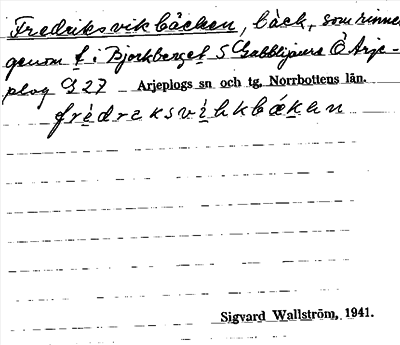 Fredriksvikbäcken, bäck, som rinner
genom t. i Björkberget S Gabblijaure Ö Arje-
plog G 27 Arjeplogs sn och tg, Norrbottens län.
frèdreksvìhkbækhn
Sigvard Wallström, 1941.